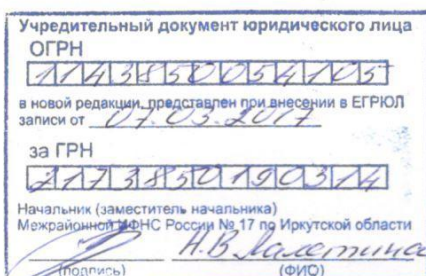 Учредительный документ юридического лица
ОГРН
1143850054105
в новой редакции, представлен при внесении в ЕГРЮЛ
записи от 07.03.2017
за ГРН
2173850190314
Начальник (заместитель начальника)
Межрайонной ИФНС России № 17 по Иркутской области
Н.В.
(подпись) (ФИО)